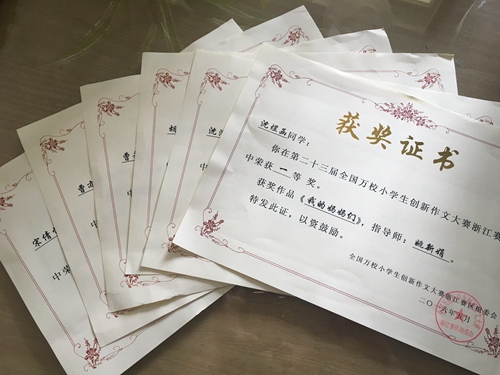 获奖证书
沈煜函同学：
你在第二十三届全国万校小学生创新作文大赛浙江赛
中荣获一等奖。
获奖作品《我的妈妈们》，指导师：姚新娟。
特发此证，以资鼓励。
全国万校小学生创新作文大赛浙江赛区组委会
二〇一八年五月
沈
胡
曹
曹
宋倩
中荣
中